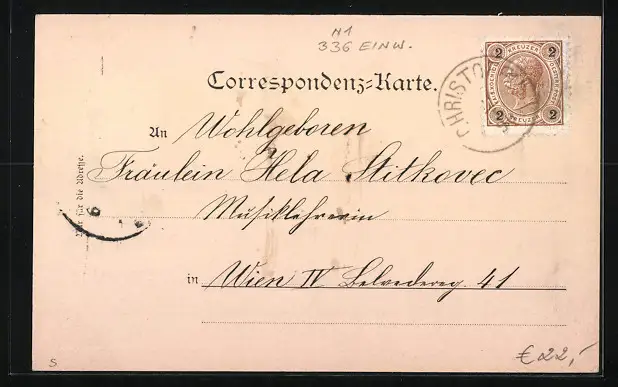 N1
336 EINW.
Correspondenz-Karte.
2 KREUZER 2
2 KREUZER 2
CHRISTO
An Wohlgeboren
Fräulein Hela Stitkovec
Musiklehrerin
in Wien IV Belvedereg. 41
Nur für die Adresse.
6
S
€ 22,-